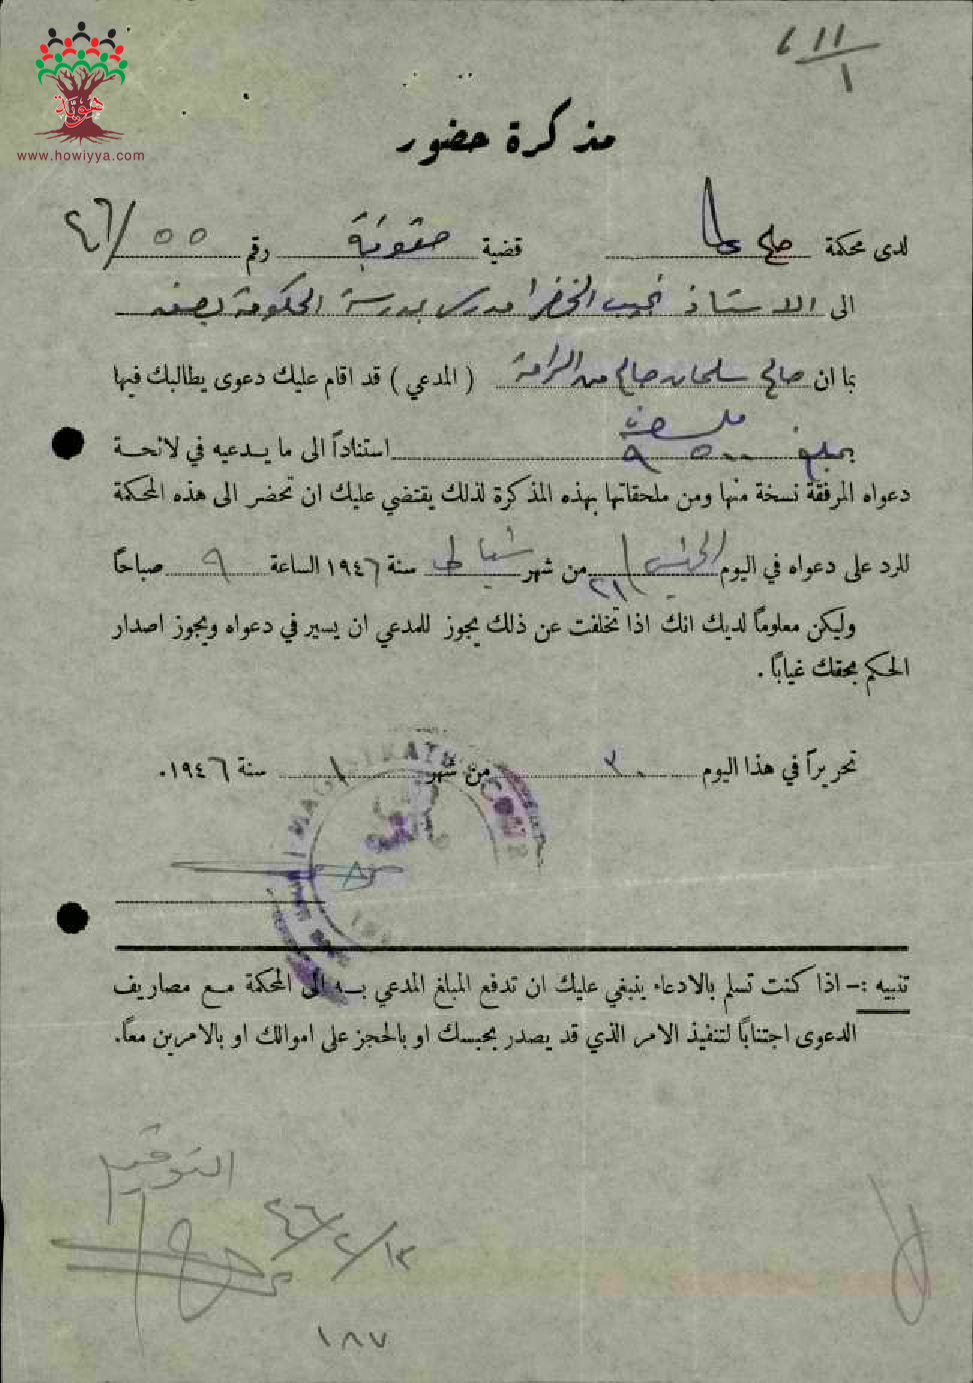 هوية
www.howiyya.com
١١١
١
مذكرة حضور
لدى محكمة صلح عكا قضية حقوقية رقم ٥٥/٤٦
الى الاستاذ نجيب الخضرا مدرس بمدرسة الحكومة بصفد
بما ان صالح سلمان صالح من الرامة (المدعي) قد اقام عليك دعوى يطالبك فيها
بمبلغ ٥٠٠ ٩ استناداً الى ما يدعيه في لائحة
دعواه المرفقة نسخة منها ومن ملحقاتها بهذه المذكرة لذلك يقتضي عليك ان تحضر الى هذه المحكمة
للرد على دعواه في اليوم الخميس ٢١ من شهر شباط سنة ١٩٤٦ الساعة ٩ صباحاً
وليكن معلوماً لديك انك اذا تخلفت عن ذلك يجوز للمدعي ان يسير في دعواه ويجوز اصدار
الحكم بحقك غياباً.
تحريراً في هذا اليوم ٣٠ من شهر ١ سنة ١٩٤٦.
MAGISTRATE'S COURT
تنبيه :- اذا كنت تسلم بالادعاء ينبغي عليك ان تدفع المبلغ المدعي بـه الى المحكمة مـع مصاريف
الدعوى اجتناباً لتنفيذ الامر الذي قد يصدر بحبسك او بالحجز على اموالك او بالامرين معاً.
التوقيع
١٣/٢/٤٦
١٨٧